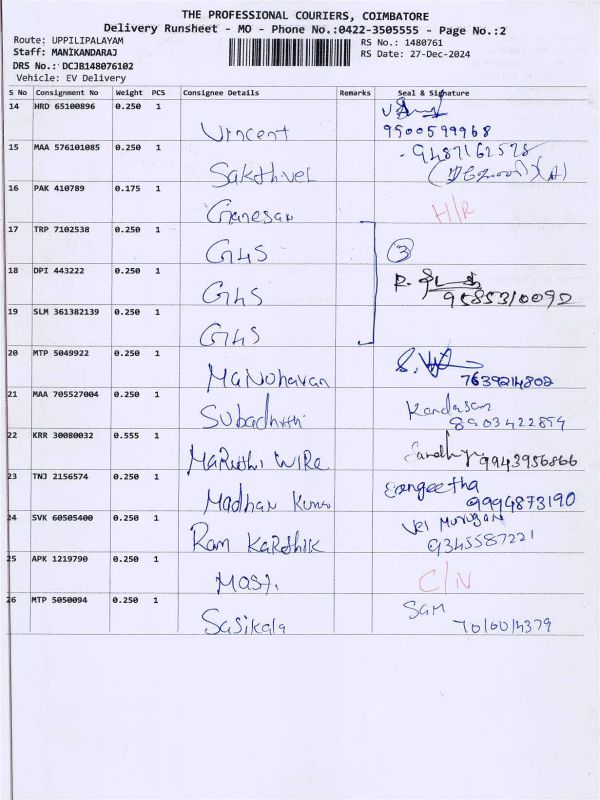 THE PROFESSIONAL COURIERS, COIMBATORE
Delivery Runsheet - MO - Phone No.:0422-3505555 - Page No.:2
Route: UPPILIPALAYAM
Staff: MANIKANDARAJ
DRS No.: DCJB148076102
Vehicle: EV Delivery
RS No.: 1480761
RS Date: 27-Dec-2024
S No Consignment No Weight PCS Consignee Details Remarks Seal & Signature
14 HRD 65100896 0.250 1 Vincent 9500599968
15 MAA 576101085 0.250 1 Sakthvel 9487162578
16 PAK 410789 0.175 1 Ganesan H/R
17 TRP 7102538 0.250 1 GHS 3
18 DPI 443222 0.250 1 GHS 9585310092
19 SLM 361382139 0.250 1 GHS
20 MTP 5049922 0.250 1 Manoharan 7639214802
21 MAA 705527004 0.250 1 Kandasan 8903422854
22 KRR 30080032 0.555 1 Maruthi Wire 9943956866
23 TNJ 2156574 0.250 1 Madhan Kumar Sangeetha 9994873190
24 SVK 60505400 0.250 1 Ram Karthik Vel Murugan 9345587221
25 APK 1219790 0.250 1 C/N
26 MTP 5050094 0.250 1 Sasikala Sam